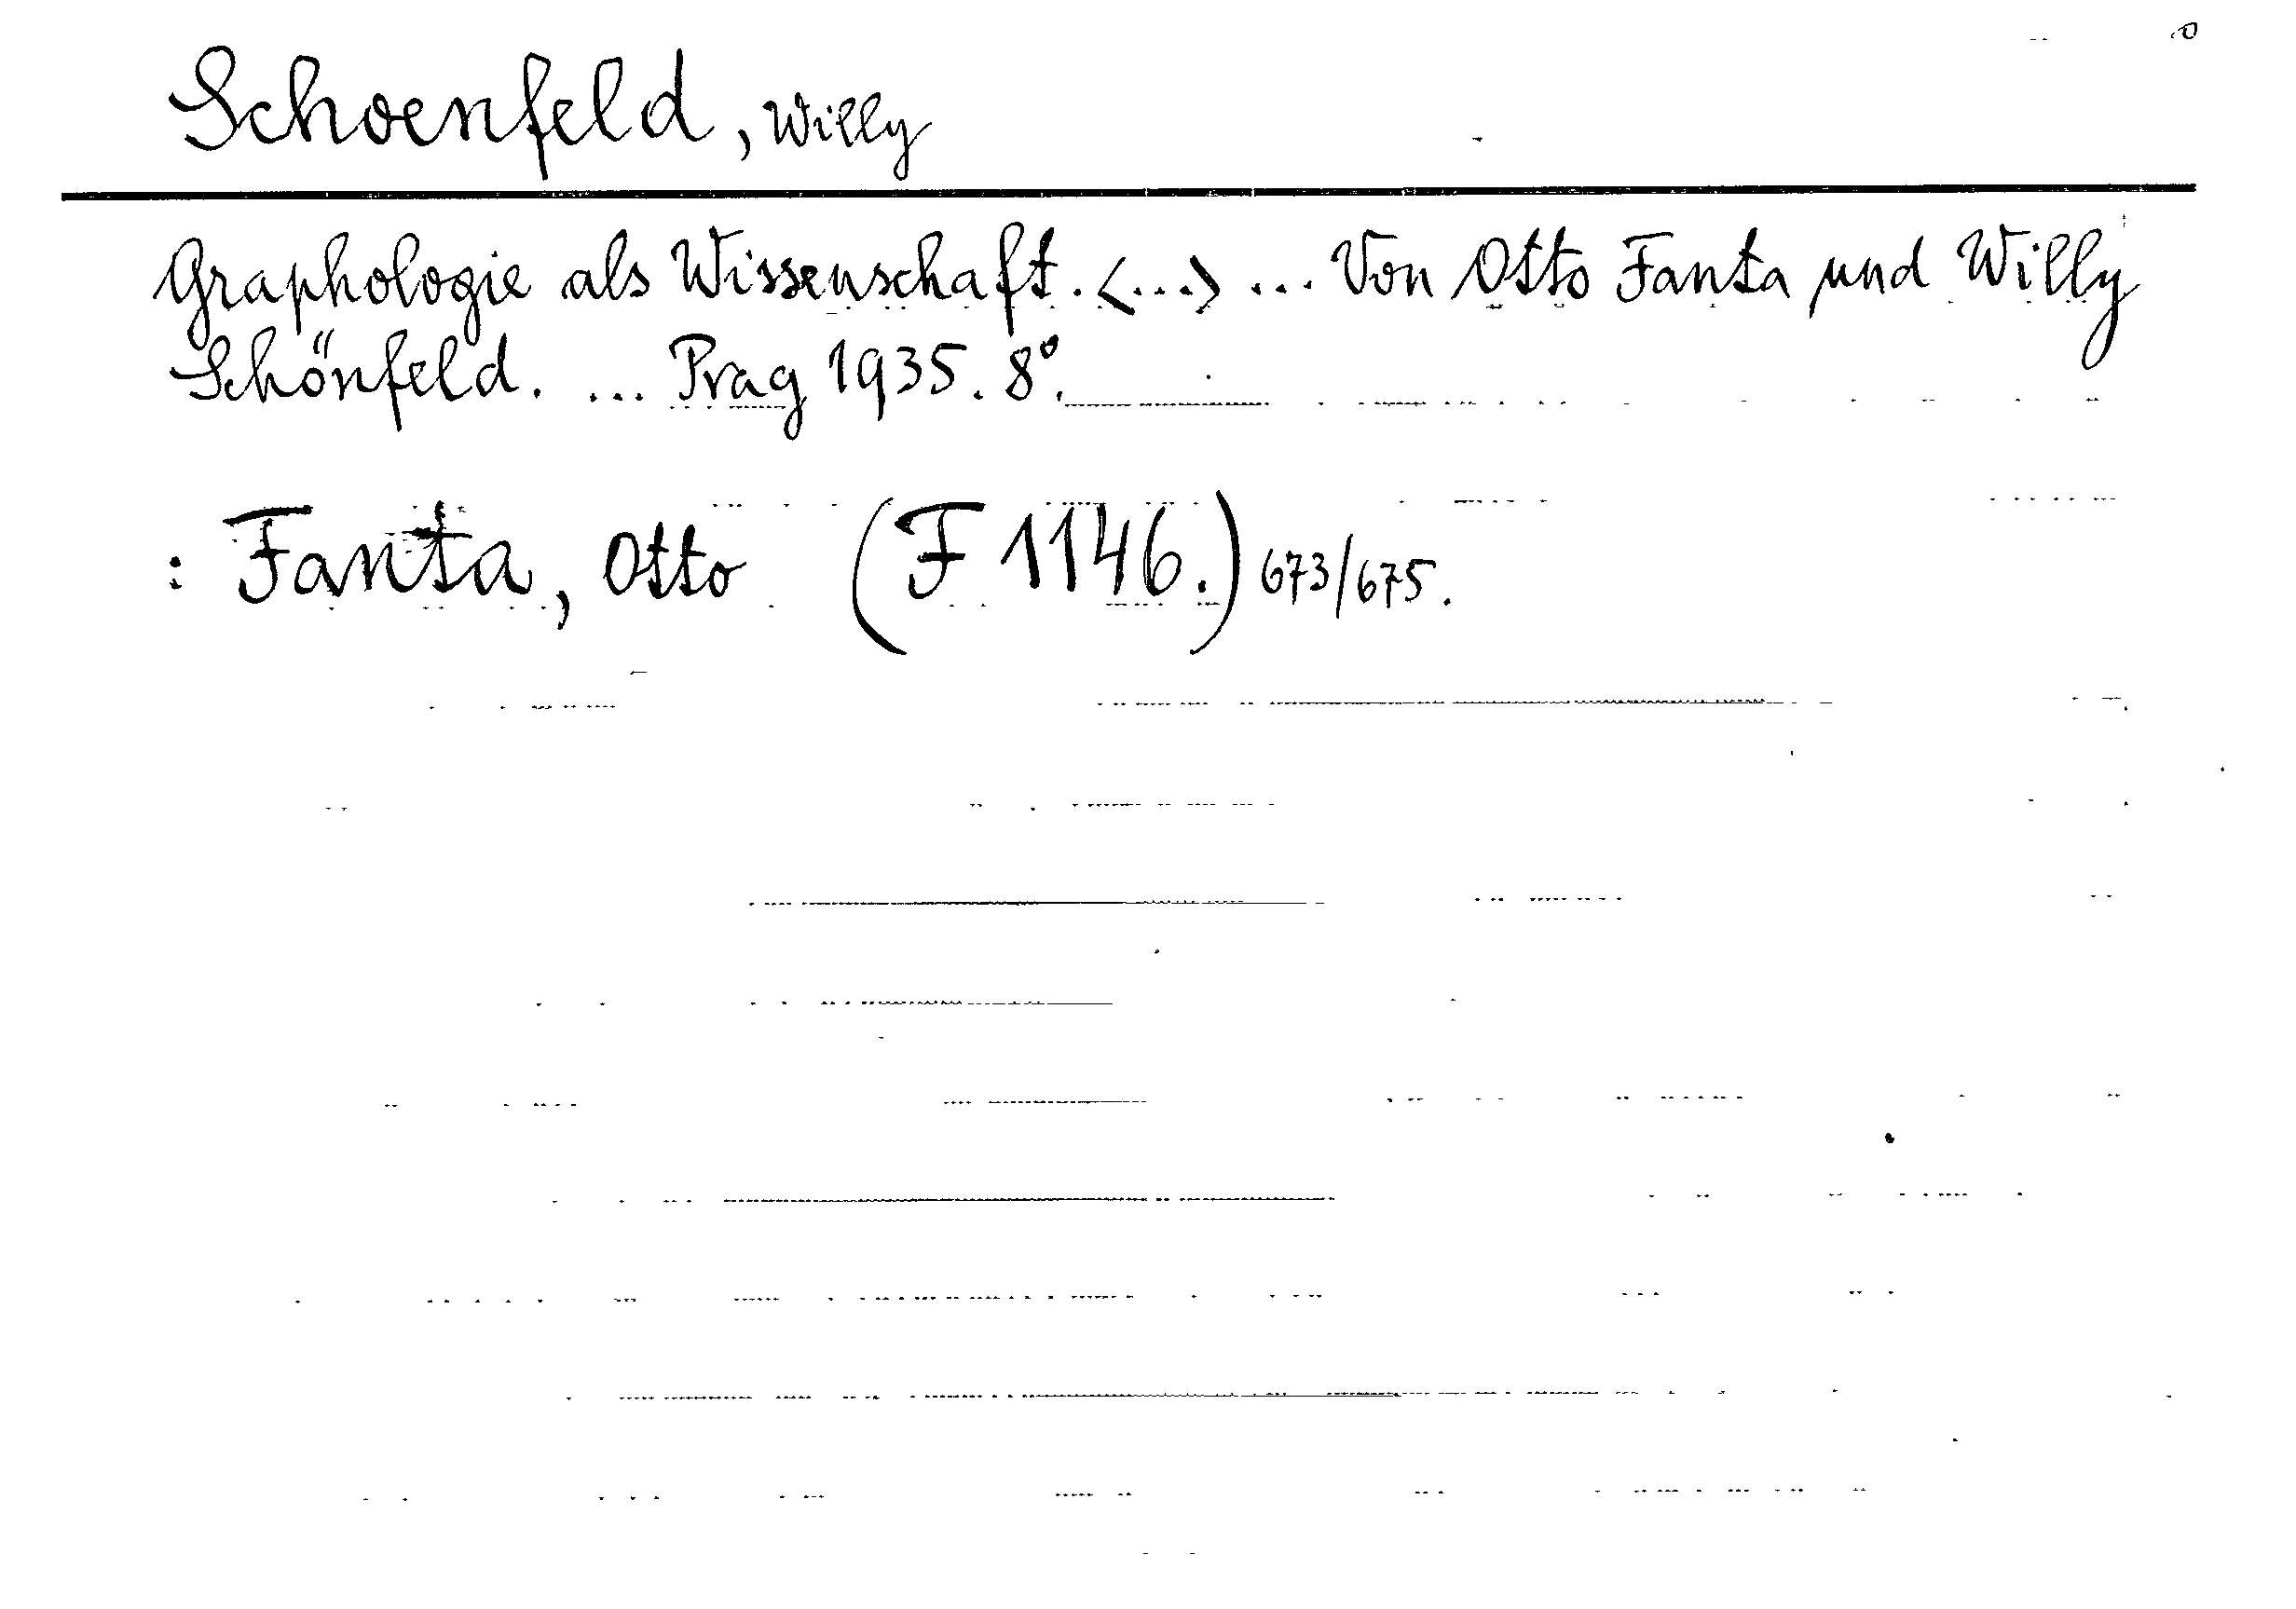 Schoenfeld, Willy
Graphologie als Wissenschaft. <...> ... Von Otto Fanta und Willy
Schönfeld. ... Prag 1935. 8°.
: Fanta, Otto (F 1146.) 673/675.